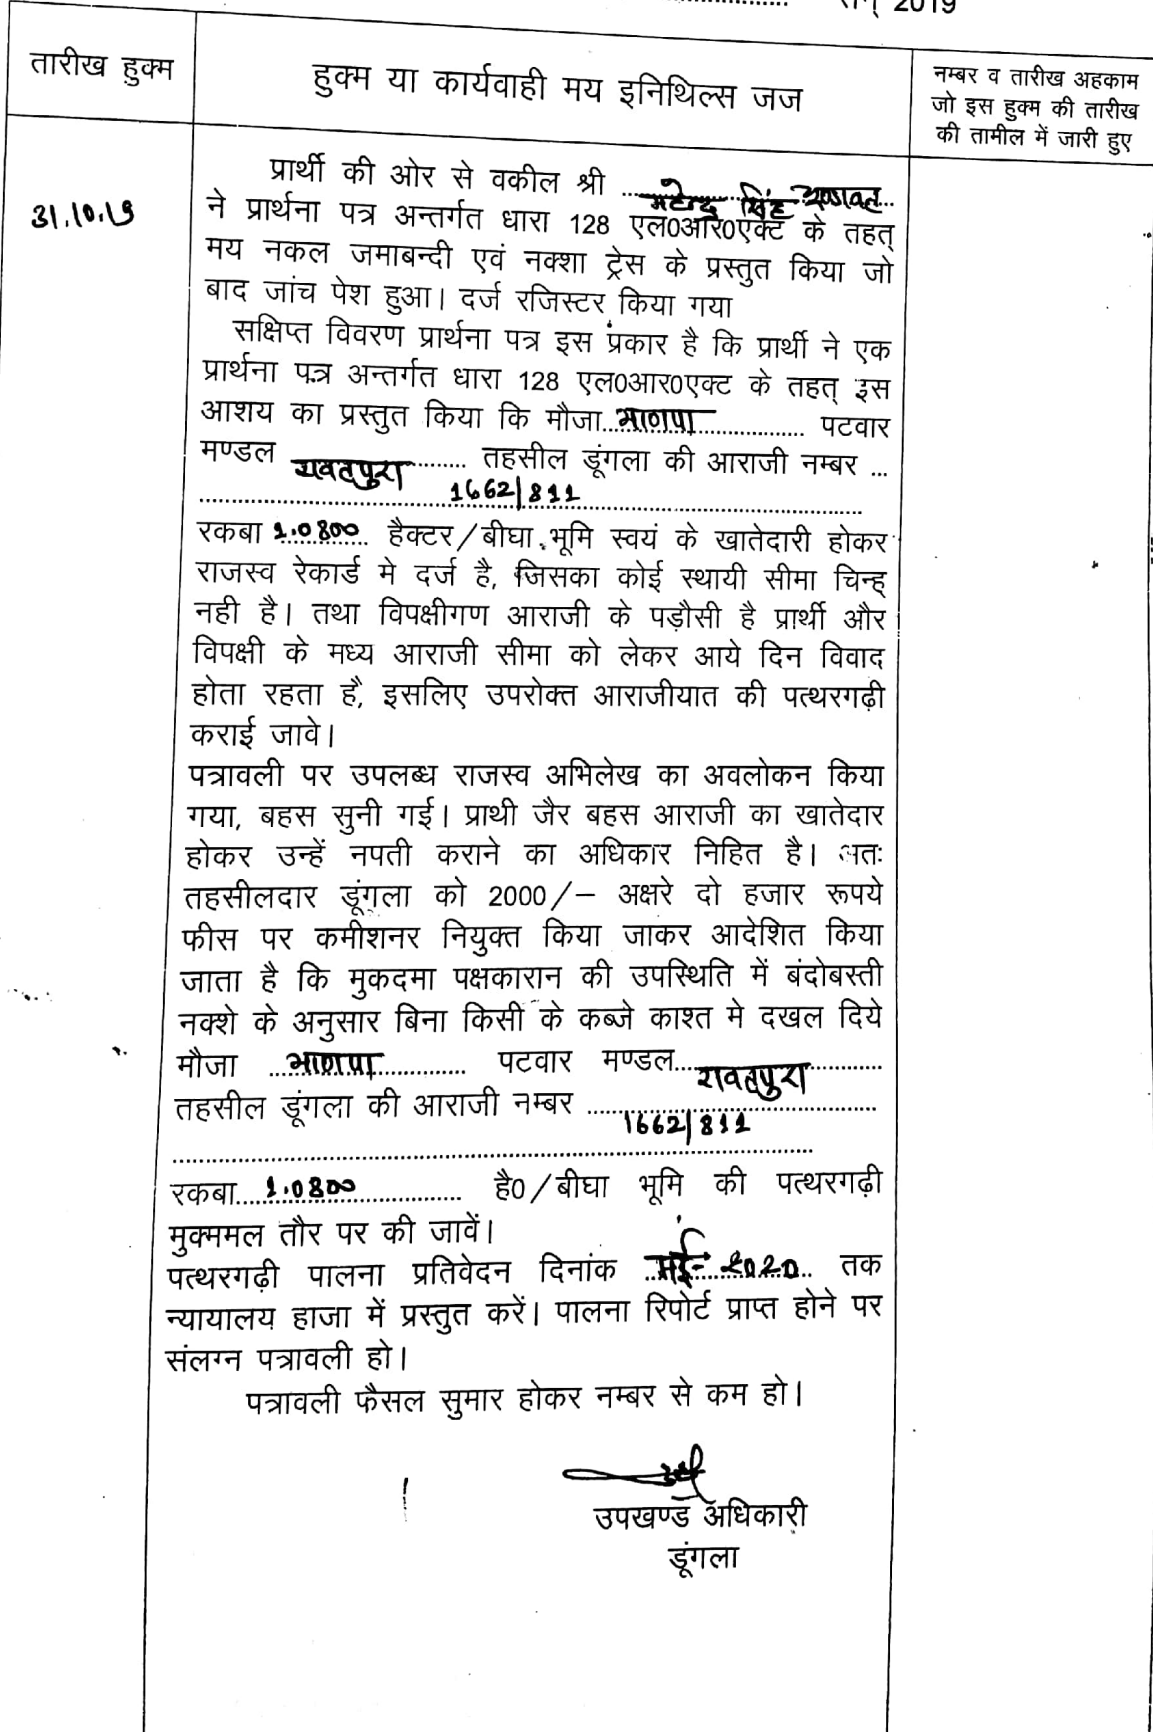 सन् 2019
तारीख हुक्म
हुक्म या कार्यवाही मय इनिथिल्स जज
नम्बर व तारीख अहकाम
जो इस हुक्म की तारीख
की तामील में जारी हुए
31.10.19
प्रार्थी की ओर से वकील श्री ...महेन्द्र सिंह
ने प्रार्थना पत्र अन्तर्गत धारा 128 एल0आर0एक्ट के तहत्
मय नकल जमाबन्दी एवं नक्शा ट्रेस के प्रस्तुत किया जो
बाद जांच पेश हुआ। दर्ज रजिस्टर किया गया
सक्षिप्त विवरण प्रार्थना पत्र इस प्रकार है कि प्रार्थी ने एक
प्रार्थना पत्र अन्तर्गत धारा 128 एल0आर0एक्ट के तहत् इस
आशय का प्रस्तुत किया कि मौजा...भाणपा............ पटवार
मण्डल रावतपुरा ........ तहसील डूंगला की आराजी नम्बर ...
1662/811
रकबा 1.0800 हैक्टर/बीघा भूमि स्वयं के खातेदारी होकर
राजस्व रेकार्ड मे दर्ज है, जिसका कोई स्थायी सीमा चिन्ह्
नही है। तथा विपक्षीगण आराजी के पड़ौसी है प्रार्थी और
विपक्षी के मध्य आराजी सीमा को लेकर आये दिन विवाद
होता रहता है, इसलिए उपरोक्त आराजीयात की पत्थरगढ़ी
कराई जावे।
पत्रावली पर उपलब्ध राजस्व अभिलेख का अवलोकन किया
गया, बहस सुनी गई। प्राथी जैर बहस आराजी का खातेदार
होकर उन्हें नपती कराने का अधिकार निहित है। अतः
तहसीलदार डूंगला को 2000/– अक्षरे दो हजार रूपये
फीस पर कमीशनर नियुक्त किया जाकर आदेशित किया
जाता है कि मुकदमा पक्षकारान की उपस्थिति में बंदोबस्ती
नक्शे के अनुसार बिना किसी के कब्जे काश्त मे दखल दिये
मौजा ...भाणपा............ पटवार मण्डल....रावतपुरा........
तहसील डूंगला की आराजी नम्बर ................................
1662/811
रकबा....1.0800............ है0/बीघा भूमि की पत्थरगढ़ी
मुक्ममल तौर पर की जावें।
पत्थरगढ़ी पालना प्रतिवेदन दिनांक ..मई- 2020.. तक
न्यायालय हाजा में प्रस्तुत करें। पालना रिपोर्ट प्राप्त होने पर
संलग्न पत्रावली हो।
पत्रावली फैसल सुमार होकर नम्बर से कम हो।
उपखण्ड अधिकारी
डूंगला